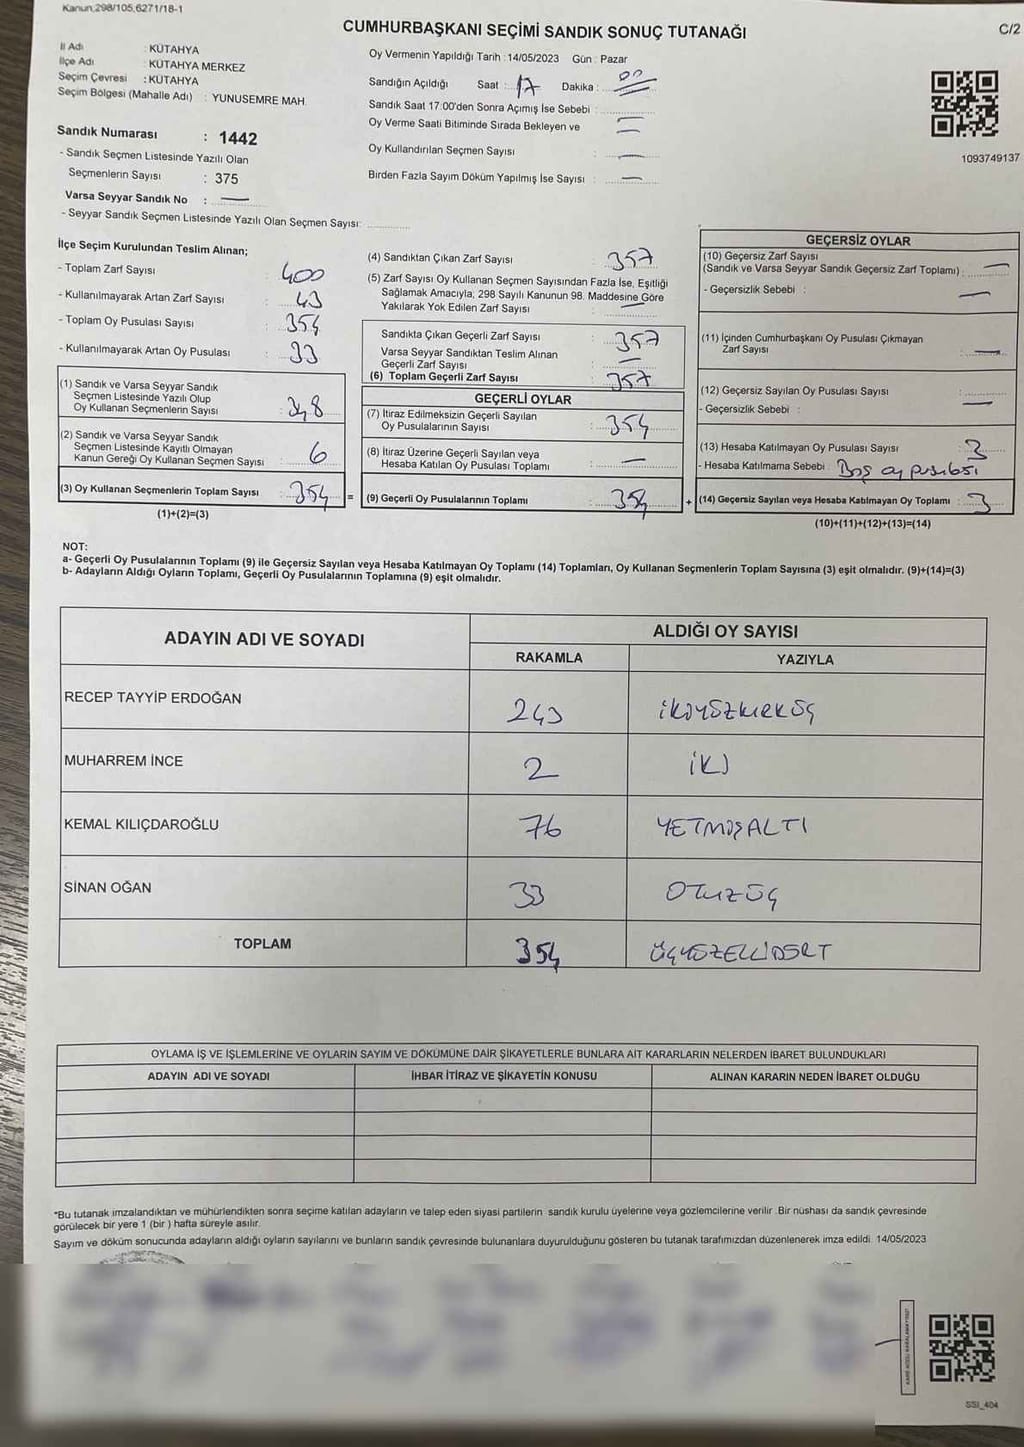 Kanun,298/105,6271/18-1
CUMHURBAŞKANI SEÇİMİ SANDIK SONUÇ TUTANAĞI
C/2
İl Adı : KÜTAHYA
İlçe Adı : KÜTAHYA MERKEZ
Seçim Çevresi : KÜTAHYA
Seçim Bölgesi (Mahalle Adı) : YUNUSEMRE MAH.
Oy Vermenin Yapıldığı Tarih : 14/05/2023 Gün : Pazar
Sandığın Açıldığı Saat : 17 Dakika : 00
Sandık Saat 17:00'den Sonra Açımış İse Sebebi :
Oy Verme Saati Bitiminde Sırada Bekleyen ve
Oy Kullandırılan Seçmen Sayısı : —
Birden Fazla Sayım Döküm Yapılmış İse Sayısı : —
1093749137
Sandık Numarası : 1442
- Sandık Seçmen Listesinde Yazılı Olan
Seçmenlerin Sayısı : 375
Varsa Seyyar Sandık No : —
- Seyyar Sandık Seçmen Listesinde Yazılı Olan Seçmen Sayısı:
İlçe Seçim Kurulundan Teslim Alınan;
- Toplam Zarf Sayısı : 400
- Kullanılmayarak Artan Zarf Sayısı : 43
- Toplam Oy Pusulası Sayısı : 354
- Kullanılmayarak Artan Oy Pusulası : 33
(1) Sandık ve Varsa Seyyar Sandık
Seçmen Listesinde Yazılı Olup
Oy Kullanan Seçmenlerin Sayısı : 348
(2) Sandık ve Varsa Seyyar Sandık
Seçmen Listesinde Kayıtlı Olmayan
Kanun Gereği Oy Kullanan Seçmen Sayısı : 6
(3) Oy Kullanan Seçmenlerin Toplam Sayısı : 354 =
(1)+(2)=(3)
(4) Sandıktan Çıkan Zarf Sayısı : 357
(5) Zarf Sayısı Oy Kullanan Seçmen Sayısından Fazla İse, Eşitliği
Sağlamak Amacıyla, 298 Sayılı Kanunun 98. Maddesine Göre
Yakılarak Yok Edilen Zarf Sayısı : —
Sandıkta Çıkan Geçerli Zarf Sayısı : 357
Varsa Seyyar Sandıktan Teslim Alınan
Geçerli Zarf Sayısı : —
(6) Toplam Geçerli Zarf Sayısı : 357
GEÇERLİ OYLAR
(7) İtiraz Edilmeksizin Geçerli Sayılan
Oy Pusulalarının Sayısı : 354
(8) İtiraz Üzerine Geçerli Sayılan veya
Hesaba Katılan Oy Pusulası Toplamı : —
(9) Geçerli Oy Pusulalarının Toplamı : 354 +
GEÇERSİZ OYLAR
(10) Geçersiz Zarf Sayısı
(Sandık ve Varsa Seyyar Sandık Geçersiz Zarf Toplamı) : —
- Geçersizlik Sebebi : —
(11) İçinden Cumhurbaşkanı Oy Pusulası Çıkmayan
Zarf Sayısı : —
(12) Geçersiz Sayılan Oy Pusulası Sayısı :
- Geçersizlik Sebebi : —
(13) Hesaba Katılmayan Oy Pusulası Sayısı : 3
- Hesaba Katılmama Sebebi : Boş oy pusulası
(14) Geçersiz Sayılan veya Hesaba Katılmayan Oy Toplamı : 3
(10)+(11)+(12)+(13)=(14)
NOT:
a- Geçerli Oy Pusulalarının Toplamı (9) ile Geçersiz Sayılan veya Hesaba Katılmayan Oy Toplamı (14) Toplamları, Oy Kullanan Seçmenlerin Toplam Sayısına (3) eşit olmalıdır. (9)+(14)=(3)
b- Adayların Aldığı Oyların Toplamı, Geçerli Oy Pusulalarının Toplamına (9) eşit olmalıdır.
ADAYIN ADI VE SOYADI
ALDIĞI OY SAYISI
RAKAMLA YAZIYLA
RECEP TAYYİP ERDOĞAN 243 İKİYÜZKIRKÜÇ
MUHARREM İNCE 2 İKİ
KEMAL KILIÇDAROĞLU 76 YETMİŞALTI
SİNAN OĞAN 33 OTUZÜÇ
TOPLAM 354 ÜÇYÜZELLİDÖRT
OYLAMA İŞ VE İŞLEMLERİNE VE OYLARIN SAYIM VE DÖKÜMÜNE DAİR ŞİKAYETLERLE BUNLARA AİT KARARLARIN NELERDEN İBARET BULUNDUKLARI
ADAYIN ADI VE SOYADI İHBAR İTİRAZ VE ŞİKAYETİN KONUSU ALINAN KARARIN NEDEN İBARET OLDUĞU
*Bu tutanak imzalandıktan ve mühürlendikten sonra seçime katılan adayların ve talep eden siyasi partilerin sandık kurulu üyelerine veya gözlemcilerine verilir .Bir nüshası da sandık çevresinde
görülecek bir yere 1 (bir ) hafta süreyle asılır.
Sayım ve döküm sonucunda adayların aldığı oyların sayılarını ve bunların sandık çevresinde bulunanlara duyurulduğunu gösteren bu tutanak tarafımızdan düzenlenerek imza edildi. 14/05/2023
SSI_404